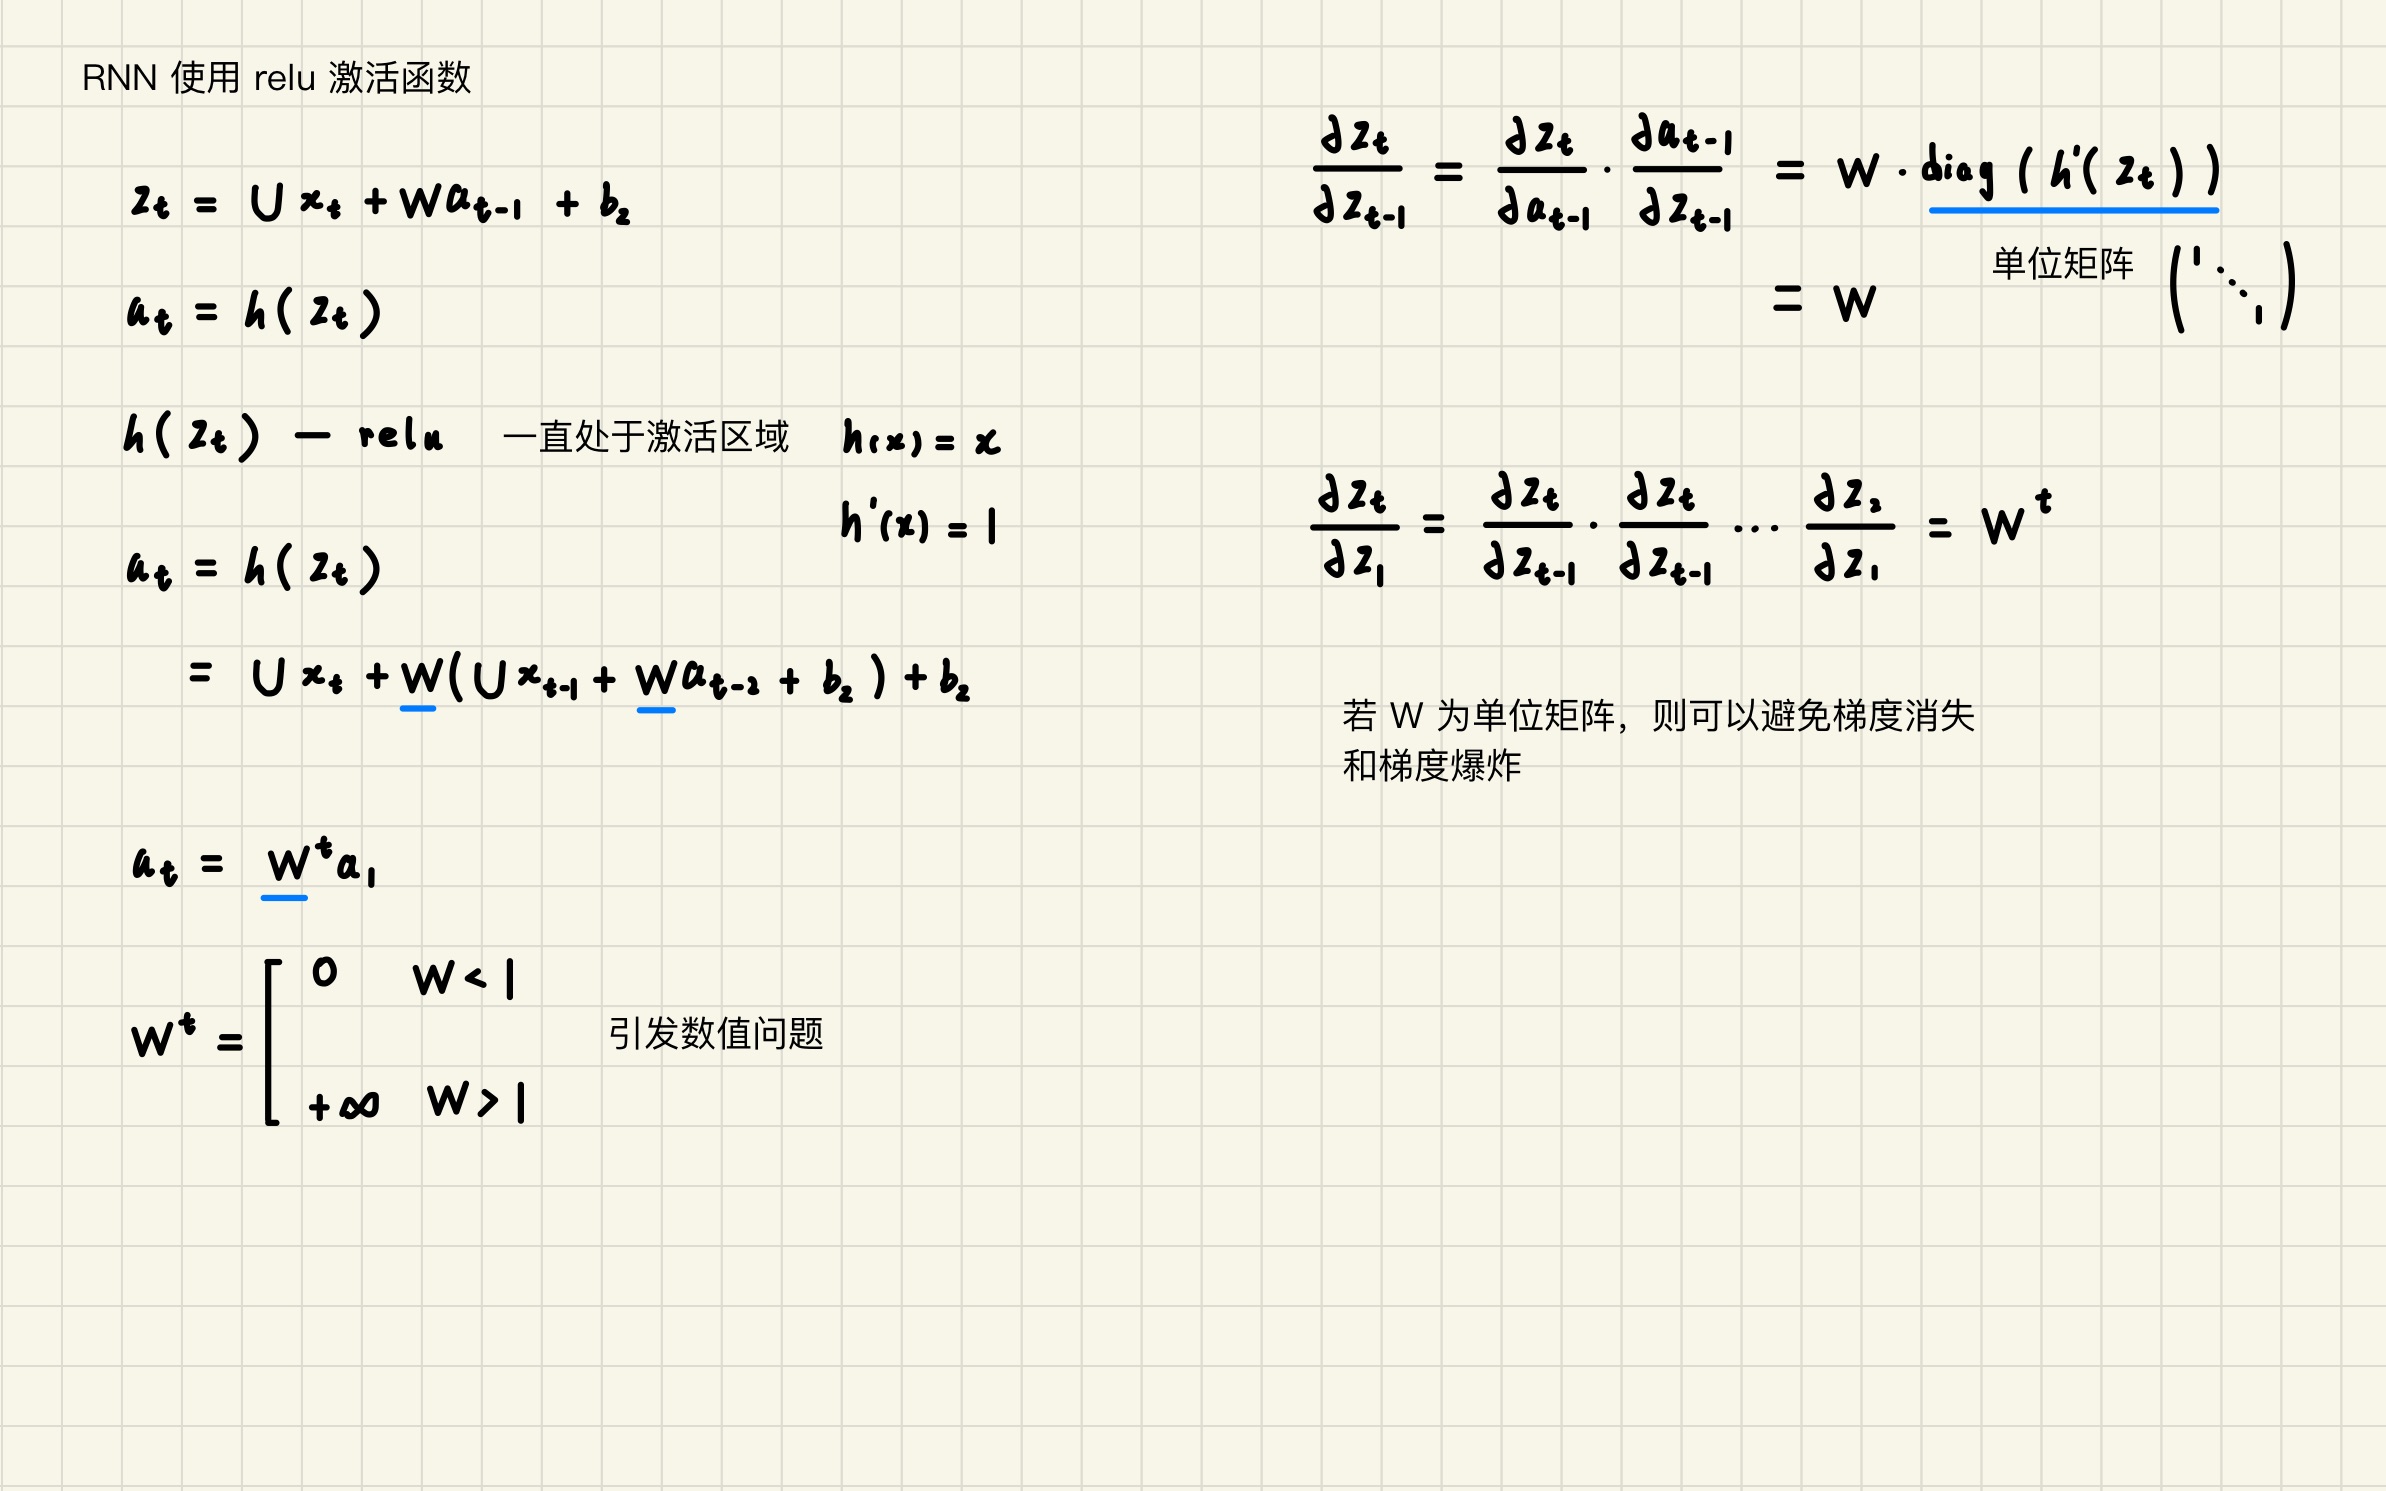 RNN 使用 relu 激活函数
z_t = U x_t + W a_{t-1} + b_z
a_t = h(z_t)
h(z_t) — relu 一直处于激活区域 h(x) = x
h'(x) = 1
a_t = h(z_t)
= U x_t + W(U x_{t-1} + W a_{t-2} + b_z) + b_z
a_t = W^t a_1
W^t = [ 0 W < 1
+∞ W > 1
引发数值问题
∂z_t/∂z_{t-1} = ∂z_t/∂a_{t-1} · ∂a_{t-1}/∂z_{t-1} = W · diag(h'(z_t))
单位矩阵 (1 ⋱ 1)
= W
∂z_t/∂z_1 = ∂z_t/∂z_{t-1} · ∂z_t/∂z_{t-1} ··· ∂z_2/∂z_1 = W^t
若 W 为单位矩阵，则可以避免梯度消失
和梯度爆炸